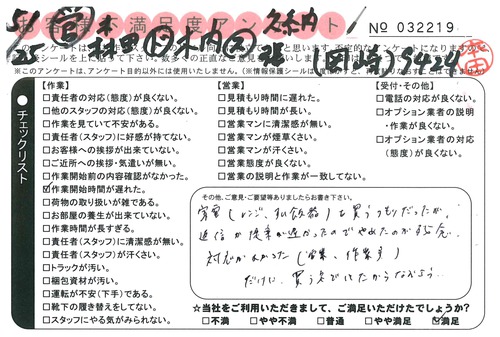 お客様不満足度アンケート
№ 032219
5/25
※このアンケートは、アンケート目的以外には使用いたしません。
チェックリスト
【作業】
□責任者の対応(態度)が良くない。
□他のスタッフの対応(態度)が良くない。
□作業を見ていて不安がある。
□責任者(スタッフ)に好感が持てない。
□お客様への挨拶が出来ていない。
□ご近所への挨拶・気遣いが無い。
□作業開始前の内容確認がなかった。
☑作業開始時間が遅れた。
□荷物の取り扱いが雑である。
□お部屋の養生が出来ていない。
□作業時間が長すぎる。
□責任者(スタッフ)に清潔感が無い。
□責任者(スタッフ)が汗くさい。
□トラックが汚い。
□梱包資材が汚い。
□運転が不安(下手)である。
□靴下の履き替えをしてない。
□スタッフにやる気がみられない。
【営業】
□見積もり時間に遅れた。
□見積もり時間が長い。
□営業マンに清潔感が無い。
□営業マンが煙草くさい。
□営業マンが汗くさい。
□営業態度が良くない。
□営業の説明と作業が一致してない。
【受付・その他】
□電話の対応が良くない。
□オプション業者の説明・作業が良くない。
□オプション業者の対応(態度)が良くない。
その他、ご意見・ご要望等ありましたらお書き下さい。
家電(レンジ、
を買うつもりだったが、
返信が
遅かったのでやめたのが残念。
対応がよかった(営業、作業員)
だけに、買う気でいたからなおさら…
☆当社をご利用いただきまして、ご満足いただけたでしょうか?
□不満 □やや不満 □普通 □やや満足 ☑満足